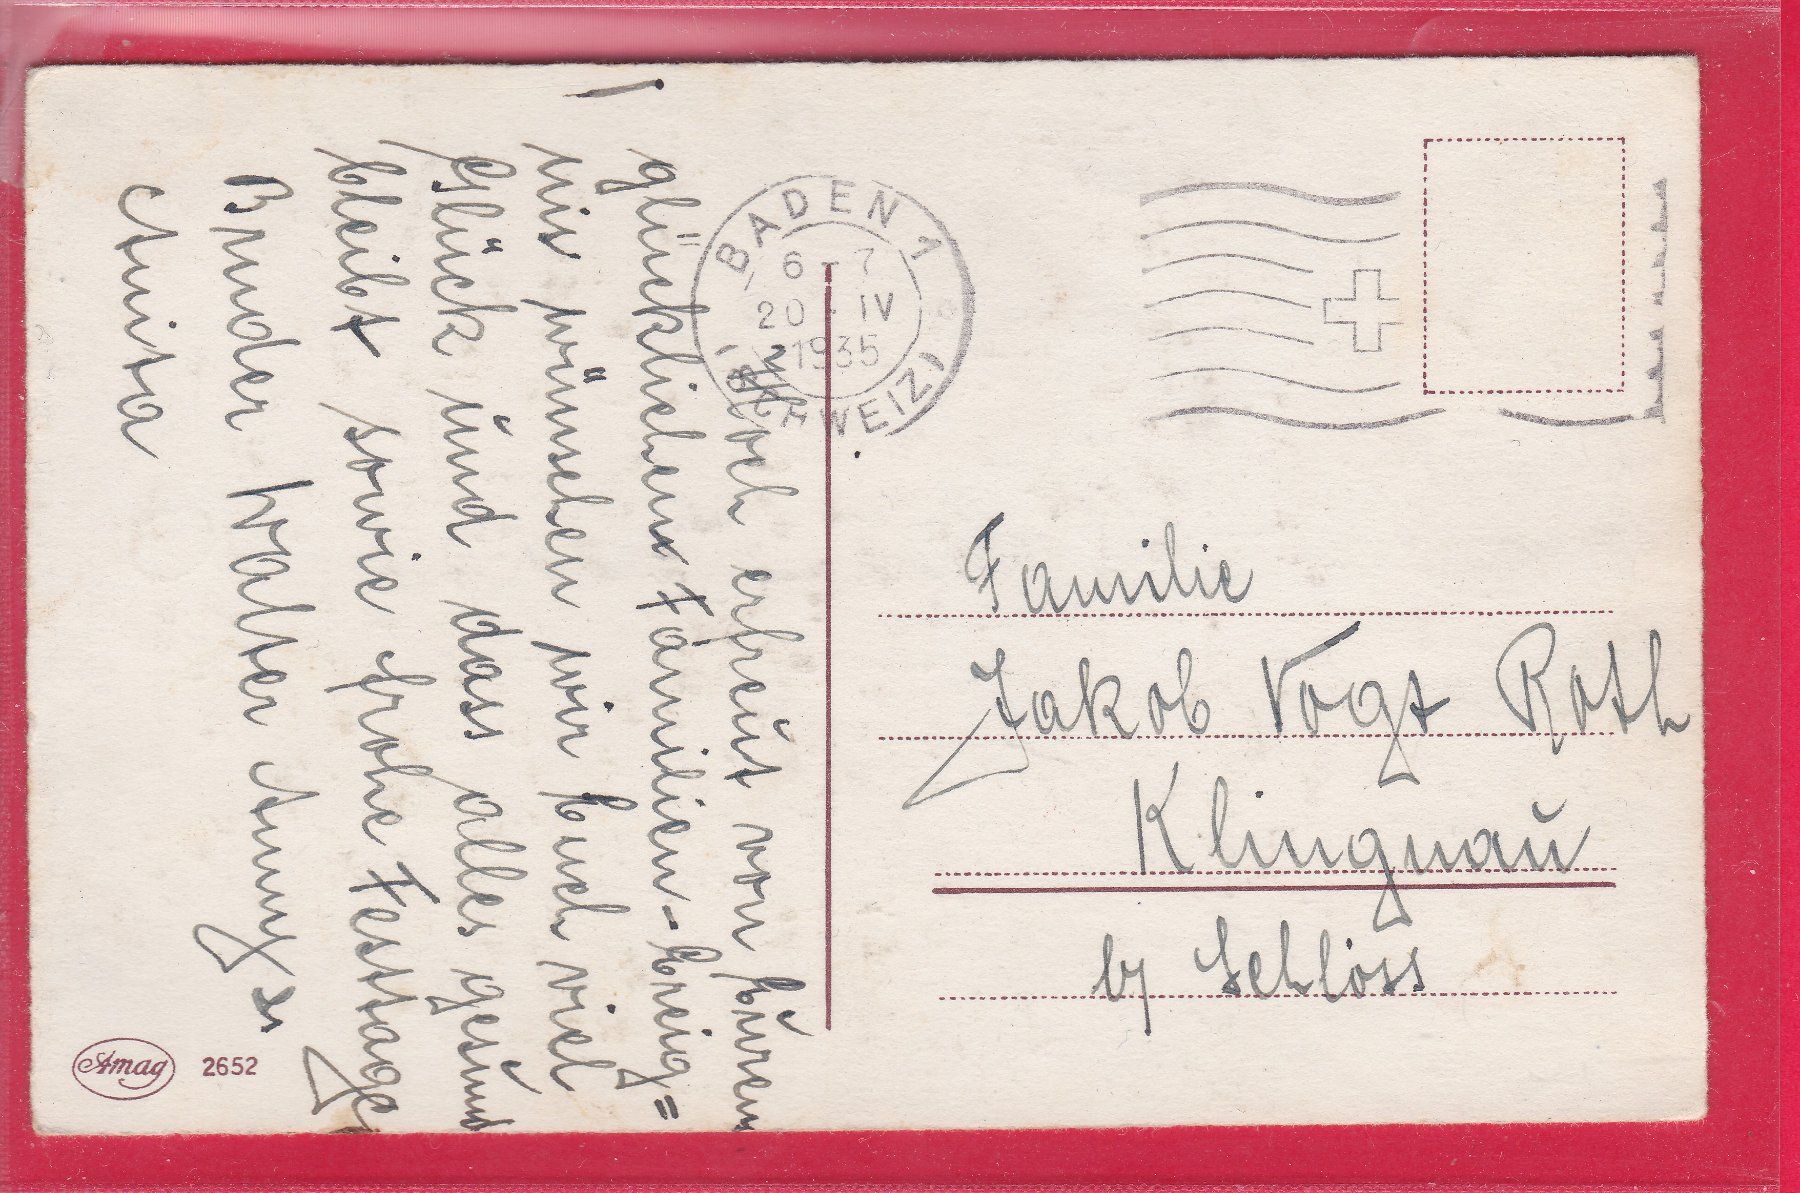 Hoch erfreut von Euren
glücklichen Familien-Ereig=
nis wünschen wir Euch viel
Glück und dass alles gesund
bleibt sowie frohe Festtage
Bruder Walter Anny &
Anita
BADEN 1
6 - 7
20 · IV
1935
(SCHWEIZ)
Familie
Jakob Vogt Roth
Klingnau
by Schloss
Amag 2652